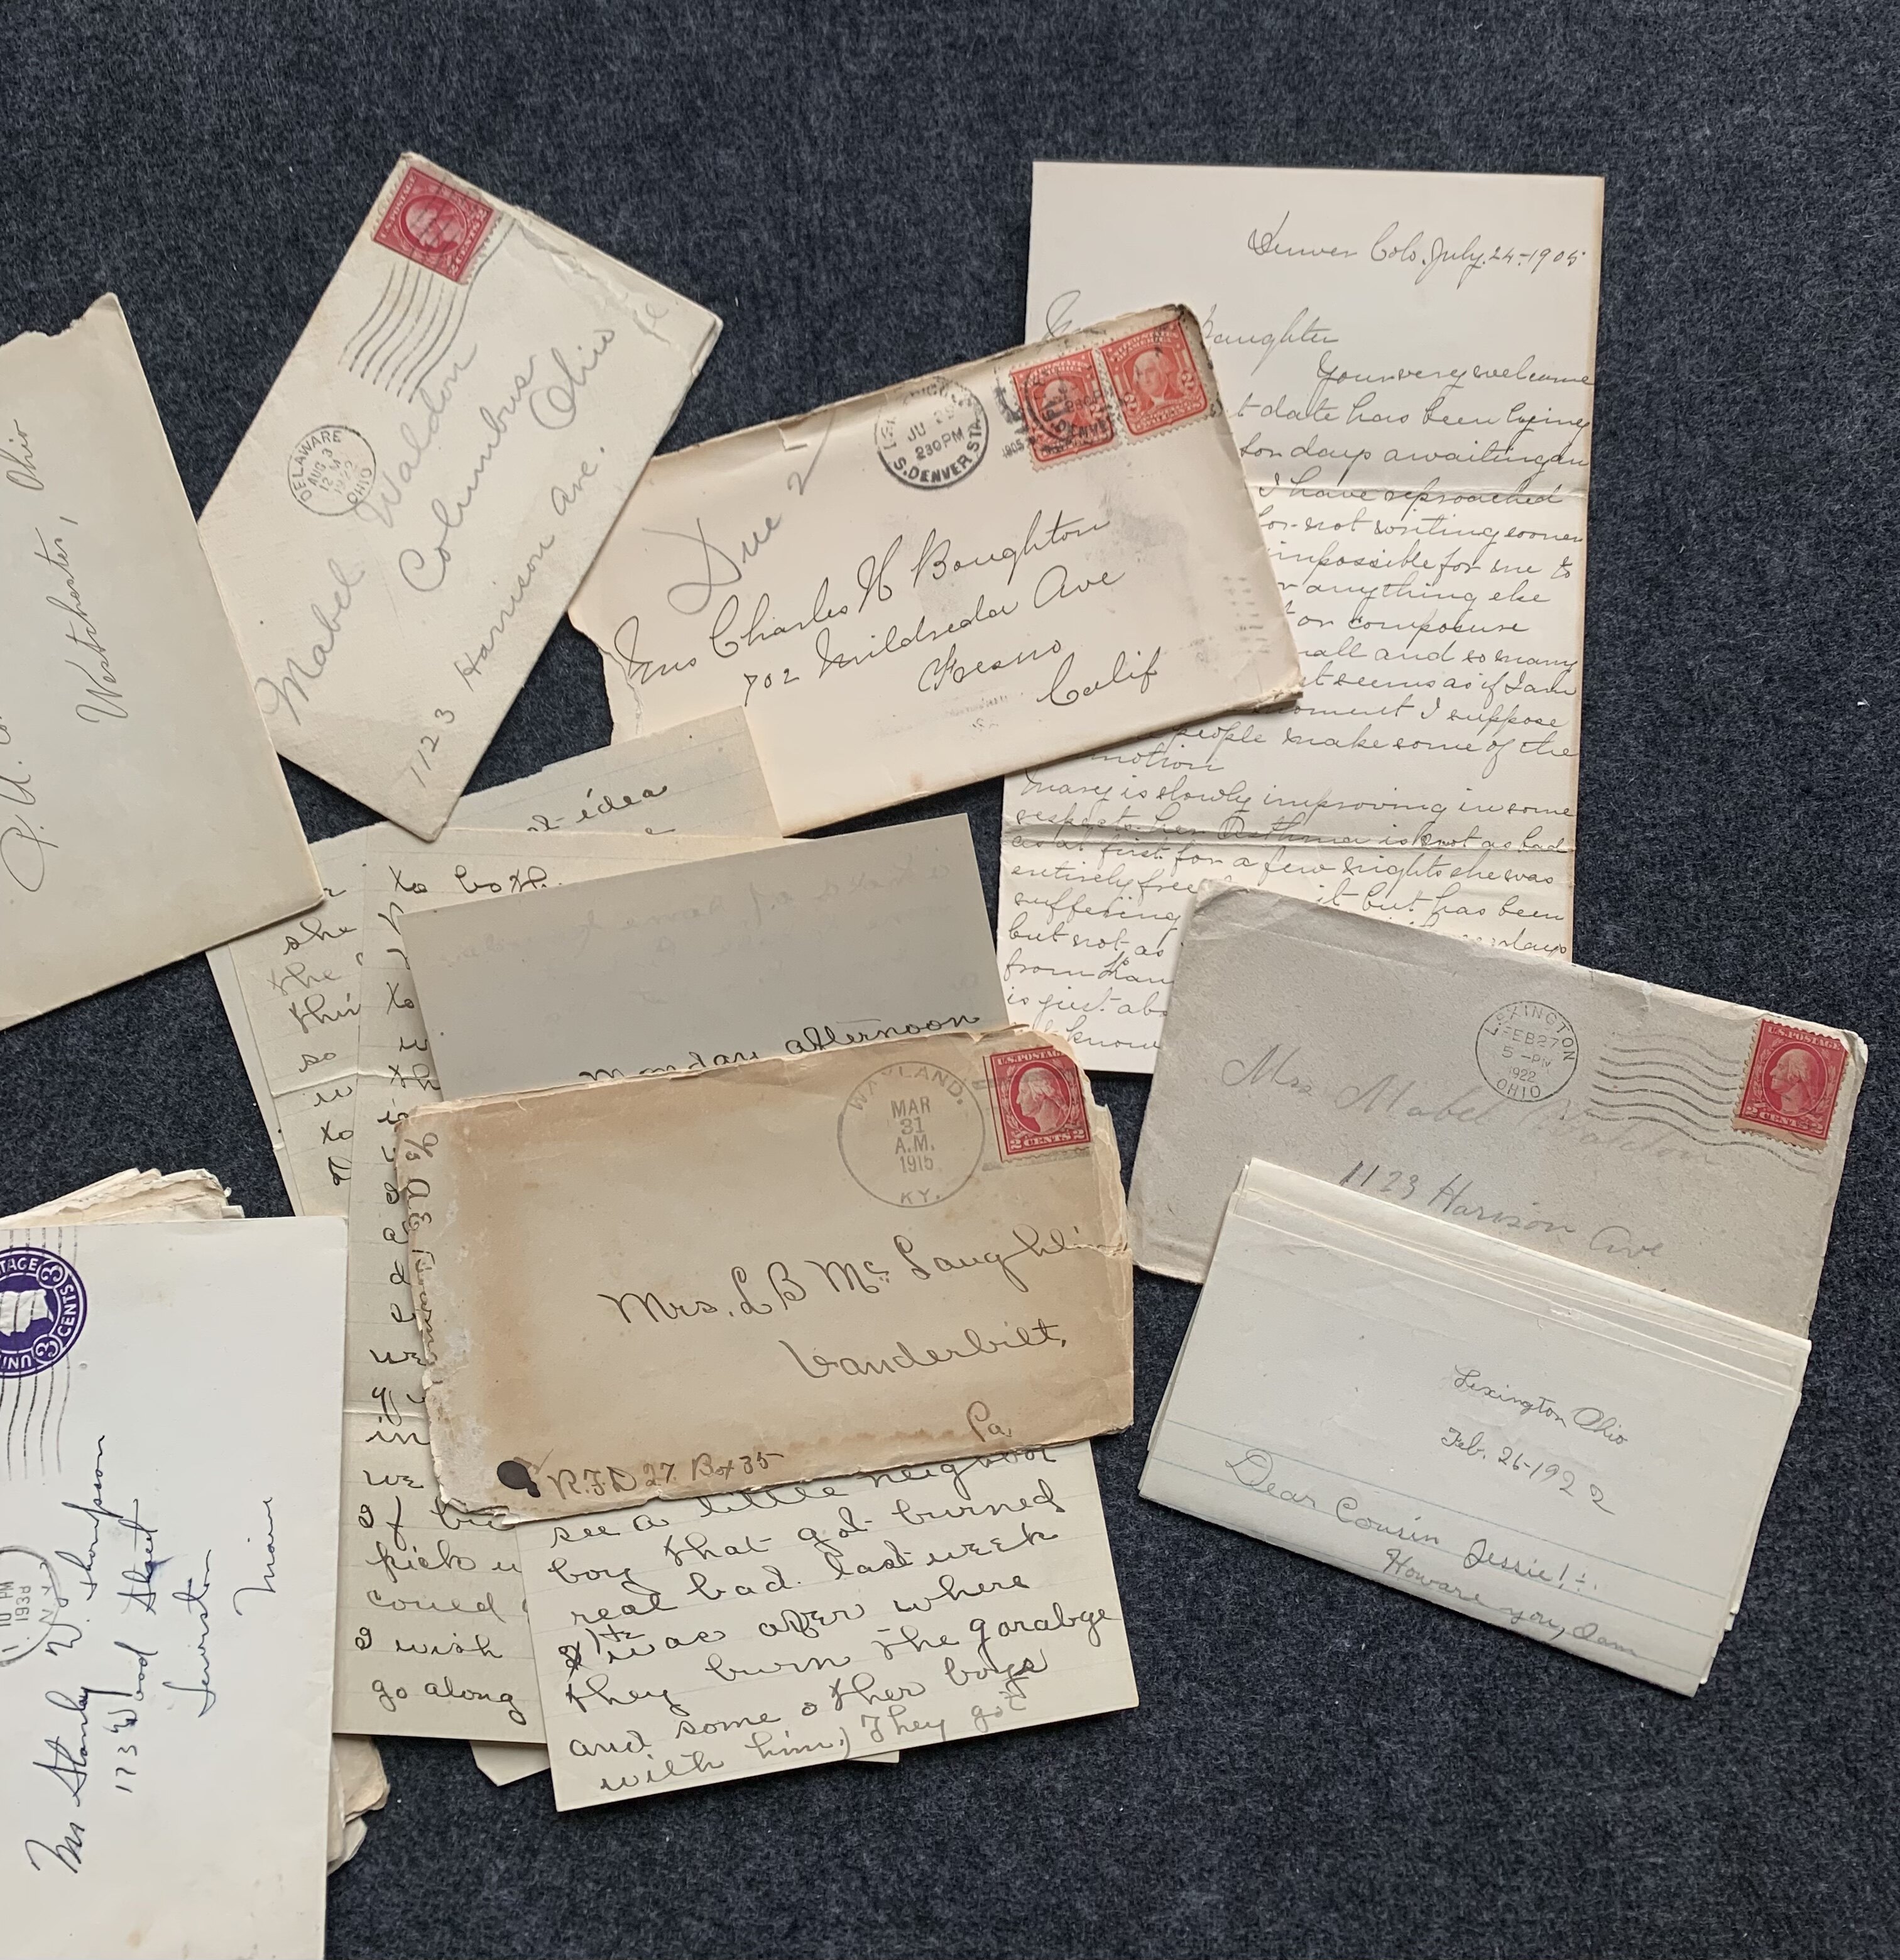 Denver Colo. July. 24-1905
Daughter
Your very welcome
t date has been lying
days awaiting an
I have reproached
for not writing sooner
impossible for me to
r anything else
t or composure
mall and so many
t seems as if I am
moment I suppose
people make some of the
motion
Mary is slowly improving in some
respects her Asthma is not as bad
as at first for a few nights she was
entirely free it but has been
suffering
but not as days
from
is just abo
know
U.S. POSTAGE
2 CENTS 2
DELAWARE
AUG 3
12 M
1922
OHIO
Mabel Waldon
Columbus
Ohio
1123 Harrison Ave.
Westchester, Ohio
JU 25
230 PM
S. DENVER STA.
1905
DENVER
Due 2
Mrs Charles H Boughton
702 Mildreda Ave
Fresno
Calif
idea
to both
she
the
this
so
to
to
Monday afternoon
WAYLAND.
MAR
31
A.M.
1915
KY.
U.S. POSTAGE
2 CENTS 2
Mrs. L B Mc Laughlin
Vanderbilt,
Pa.
R.F.D 27. Box 35
we
in
we
If
pick u
could
I wish
go along
see a little neighbor
boy that got burned
real bad last week
He was over where
they burn the garabge
and some other boys
with him) They got
LEXINGTON
FEB 27
5 - PM
1922
OHIO
U.S. POSTAGE
2 CENTS 2
Mrs. Mabel Waldon
1123 Harison Ave
Lexington Ohio
Feb. 26-1922
Dear Cousin Jessie! -:-
How are you, I am
3 CENTS 3
10 PM
1938
N.Y.
Mrs Stanley W. Thompson
173 Wood Street
Lewiston
Maine